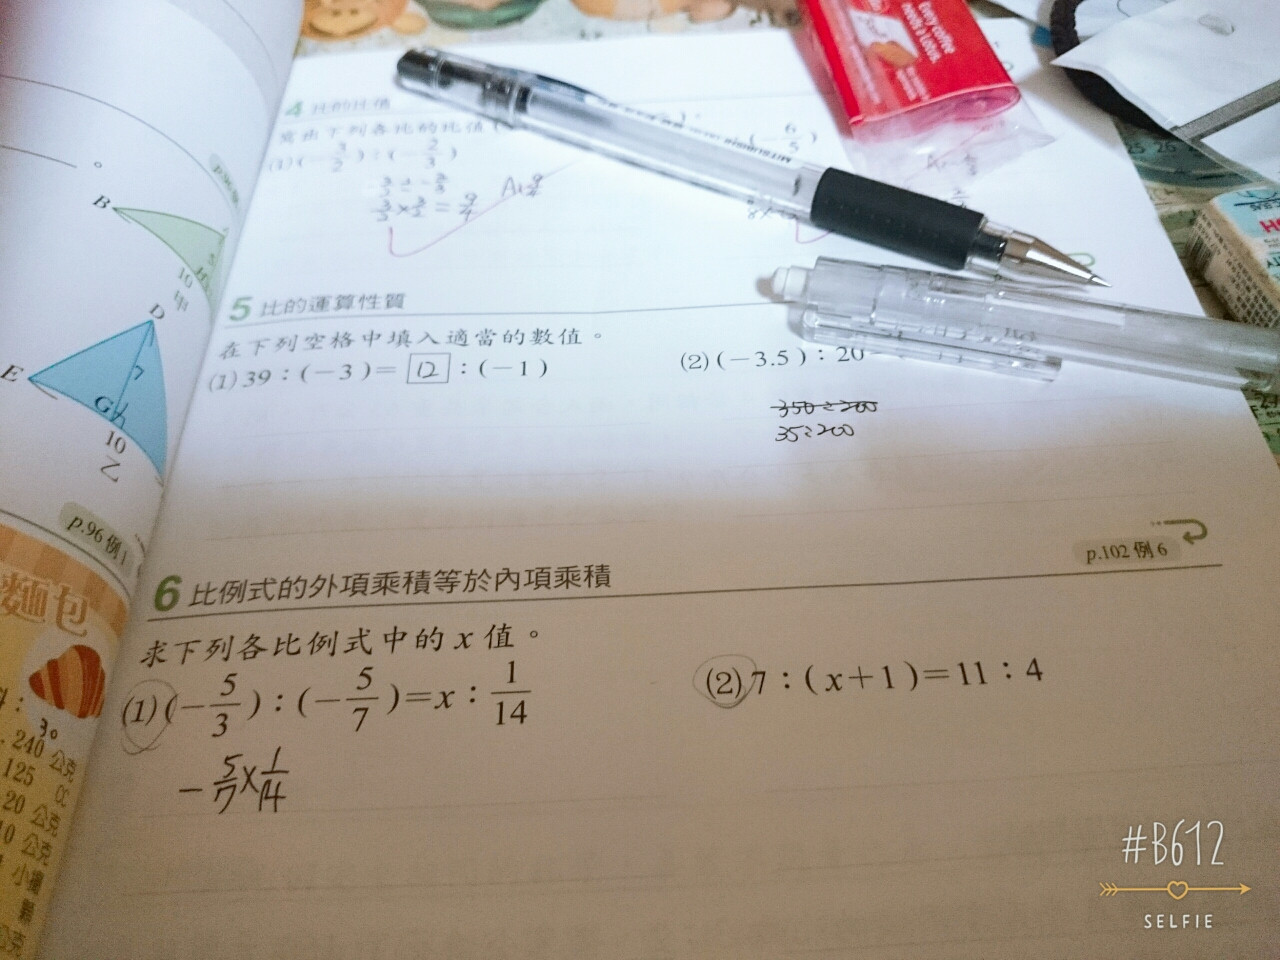 Every coffee
needs a Lotus.
4 比的比值
求出下列各比的比值
(1)(-3/2):(-2/3)
(-6/5)
3/2×3/2=9/4
A:9/4
B
10
甲
D
E
G
10
乙
p.96 例1
5 比的運算性質
在下列空格中填入適當的數值。
(1) 39:(-3)= 12 :(-1)
(2) (-3.5):20
350:200
35:200
p.102 例6
6 比例式的外項乘積等於內項乘積
求下列各比例式中的 x 值。
(1) (-5/3):(-5/7)=x:1/14
(2) 7:(x+1)=11:4
-5/7×1/14
麵包
30
240 公克
125 cc
20 公克
10 公克
小禮
顆
公克
#B612
SELFIE